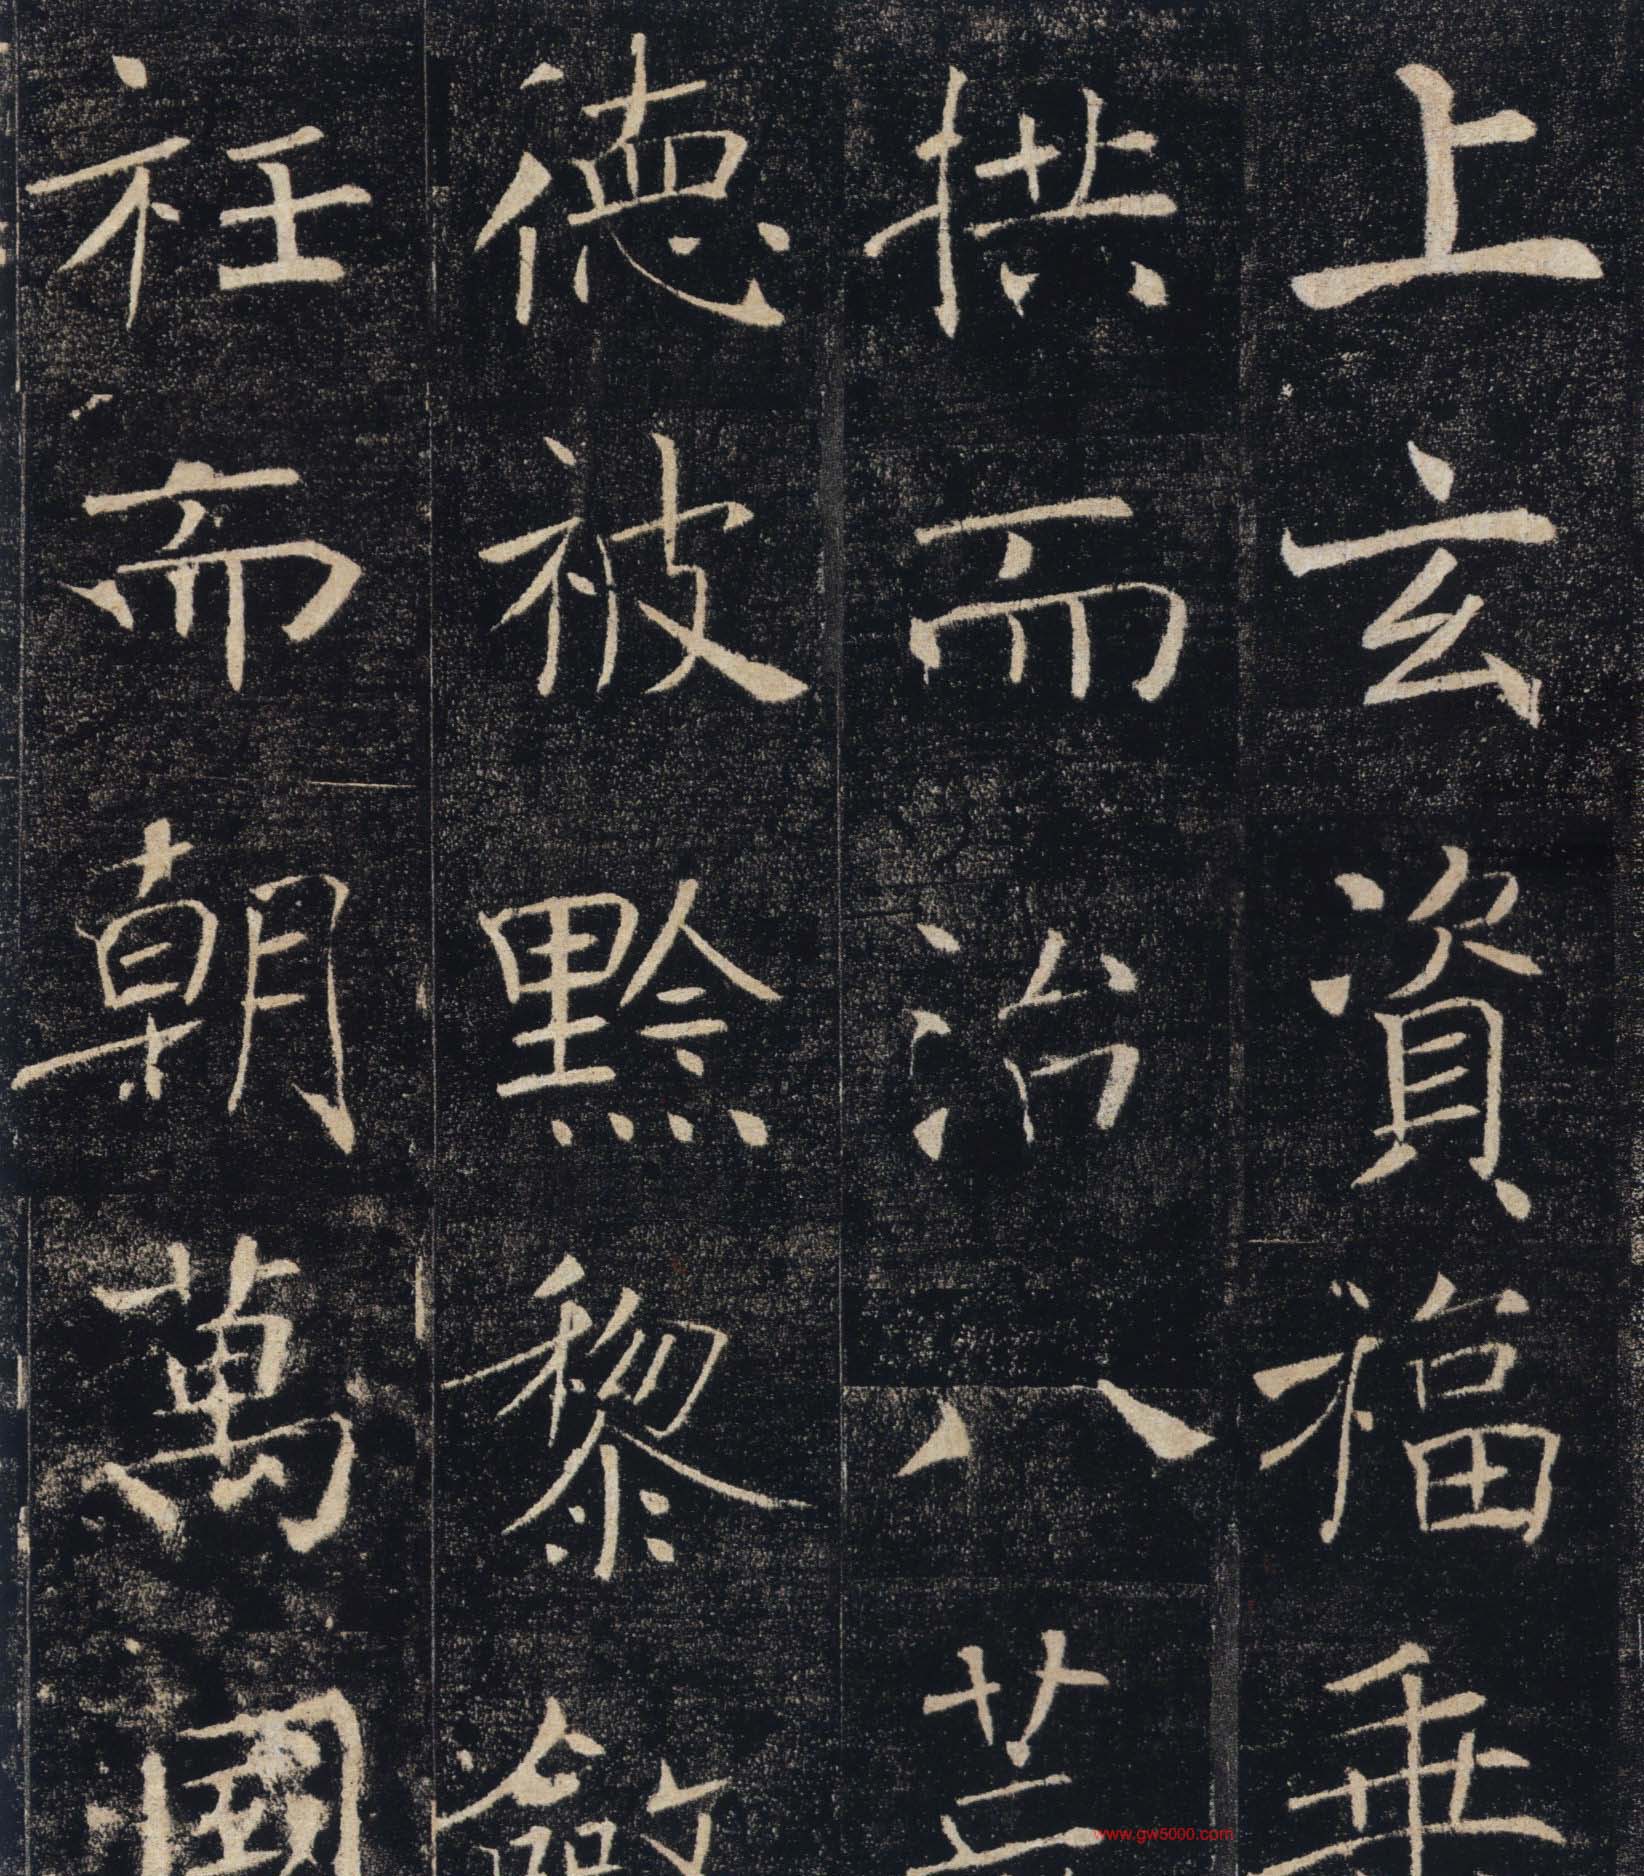 上玄資福垂
拱而治八荒
德被黔黎斂
衽而朝萬國
www.gw5000.com